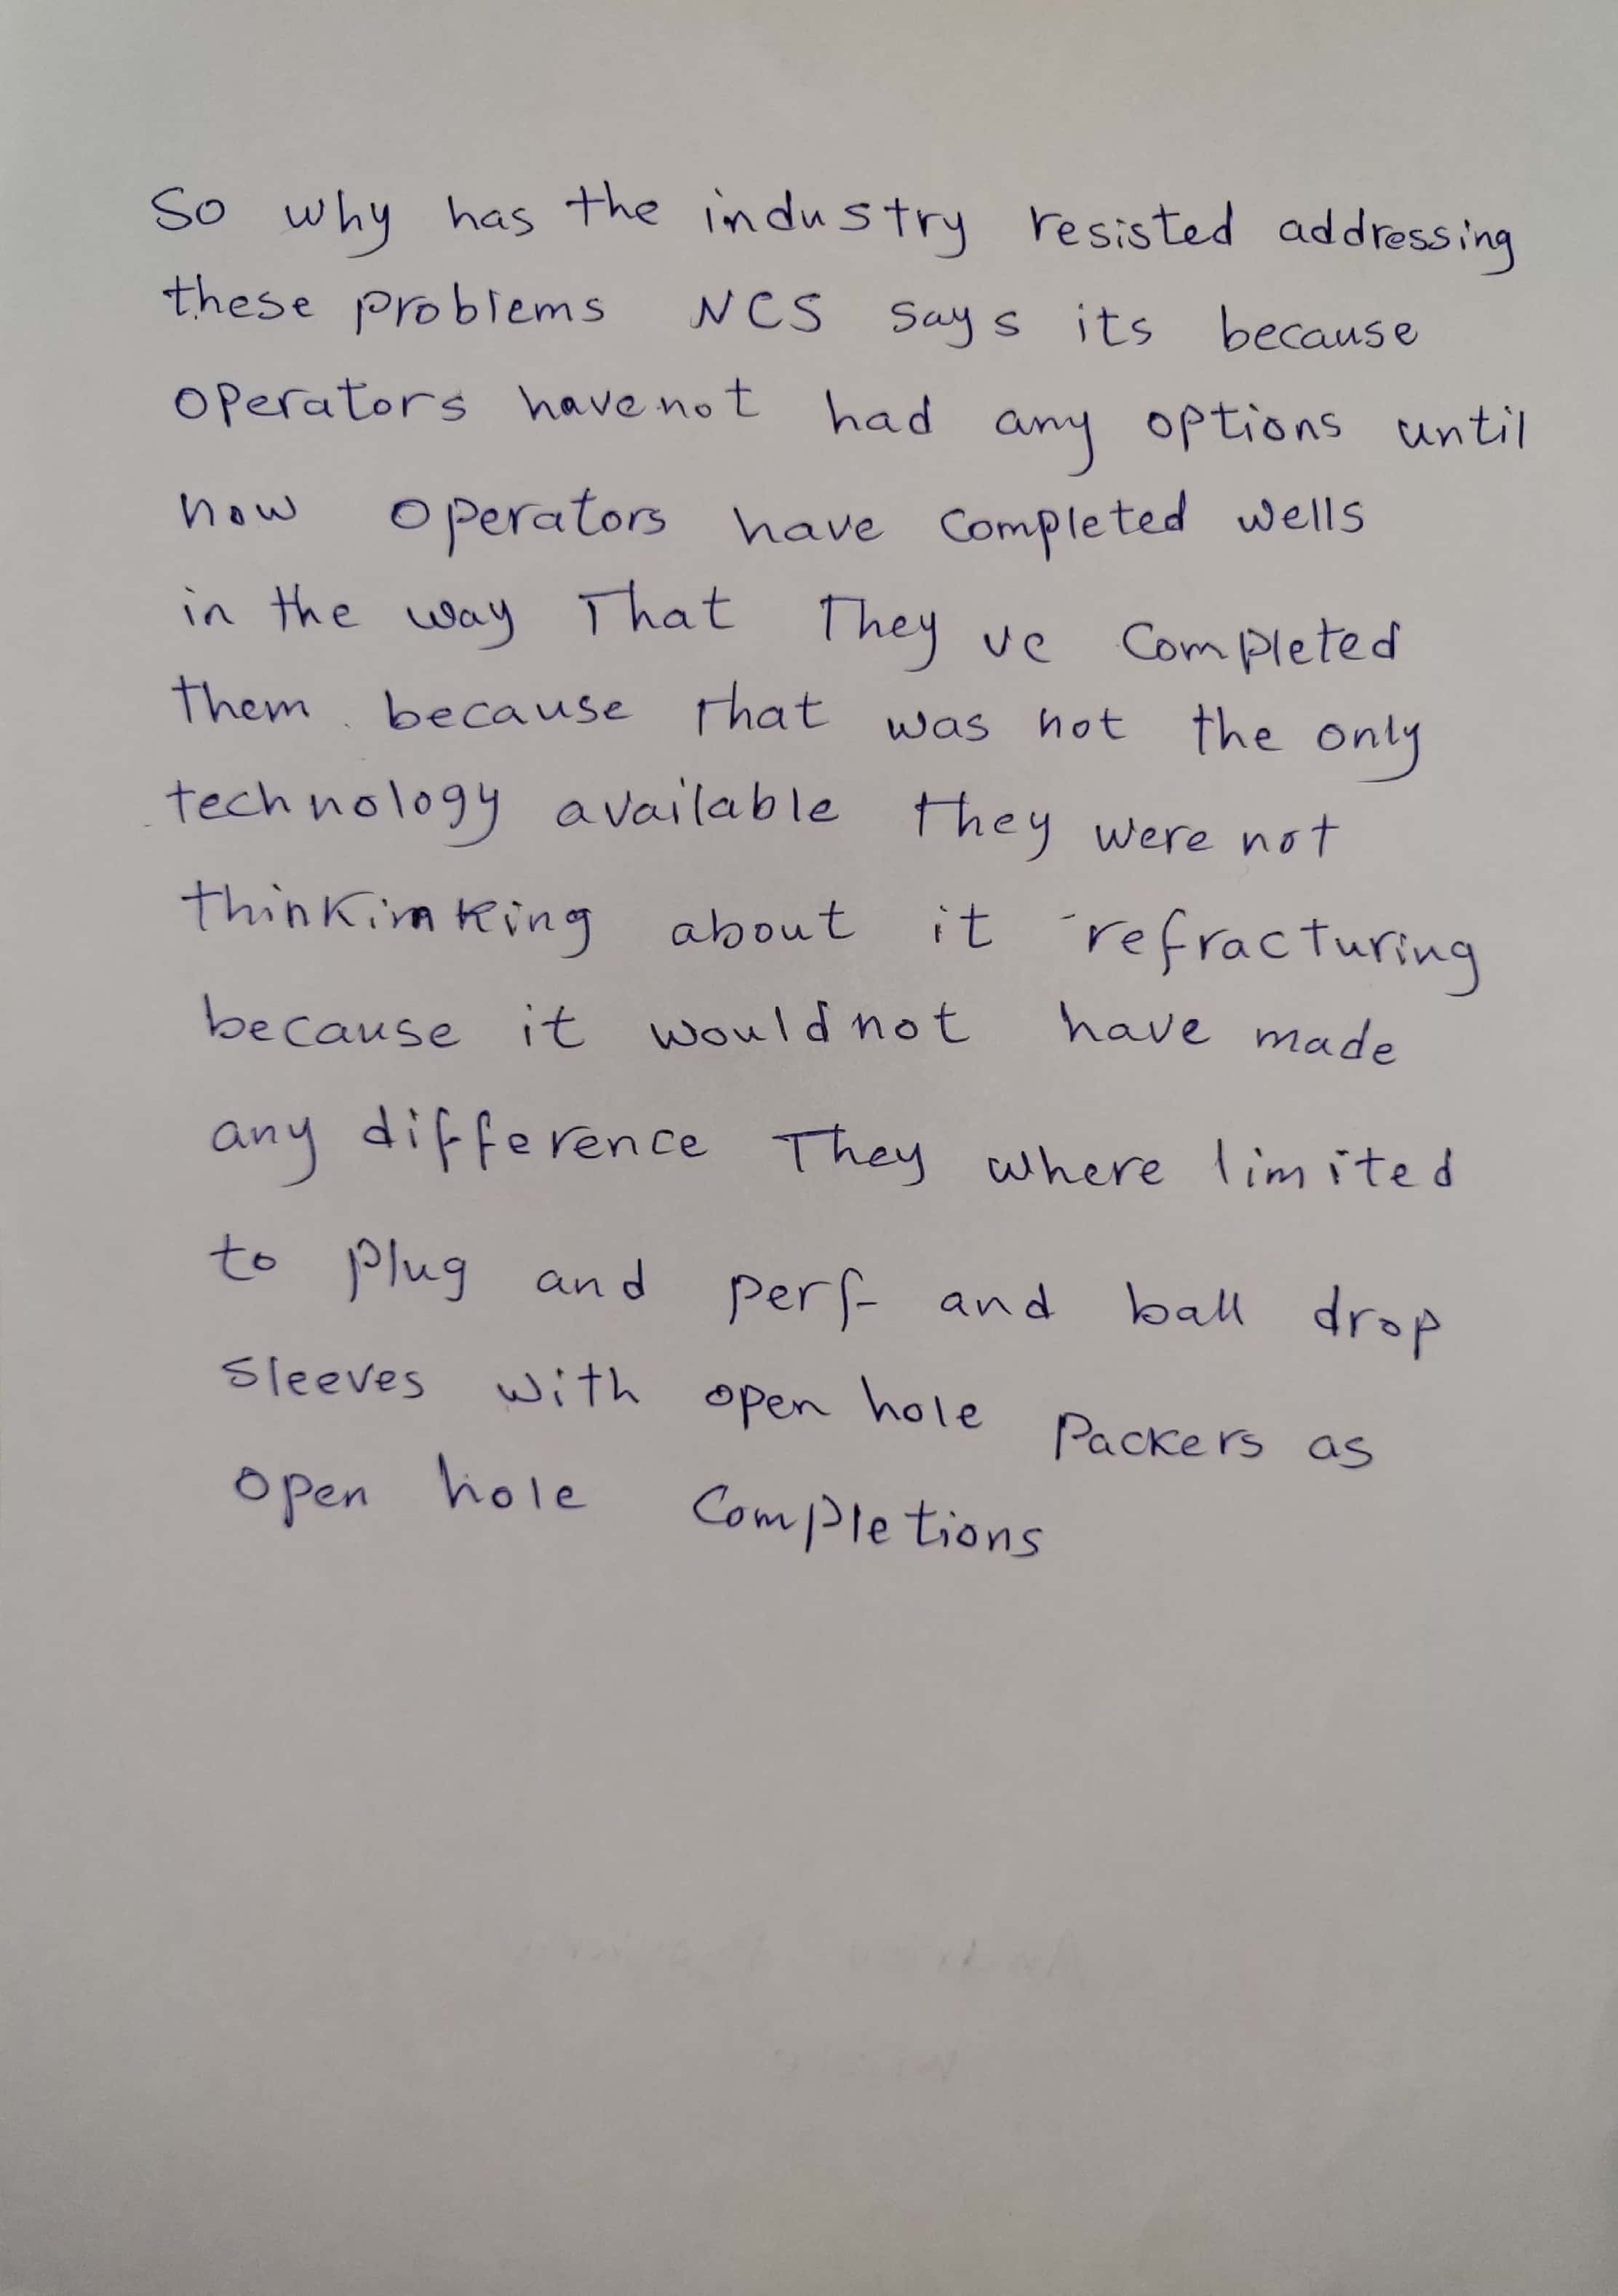 So why has the industry resisted addressing
these problems NCS says its because
operators havenot had any options until
now operators have completed wells
in the way That They ve completed
them because that was not the only
technology available they were not
thinkimking about it refracturing
because it wouldnot have made
any difference They where limited
to plug and perf and ball drop
sleeves with open hole Packers as
open hole completions